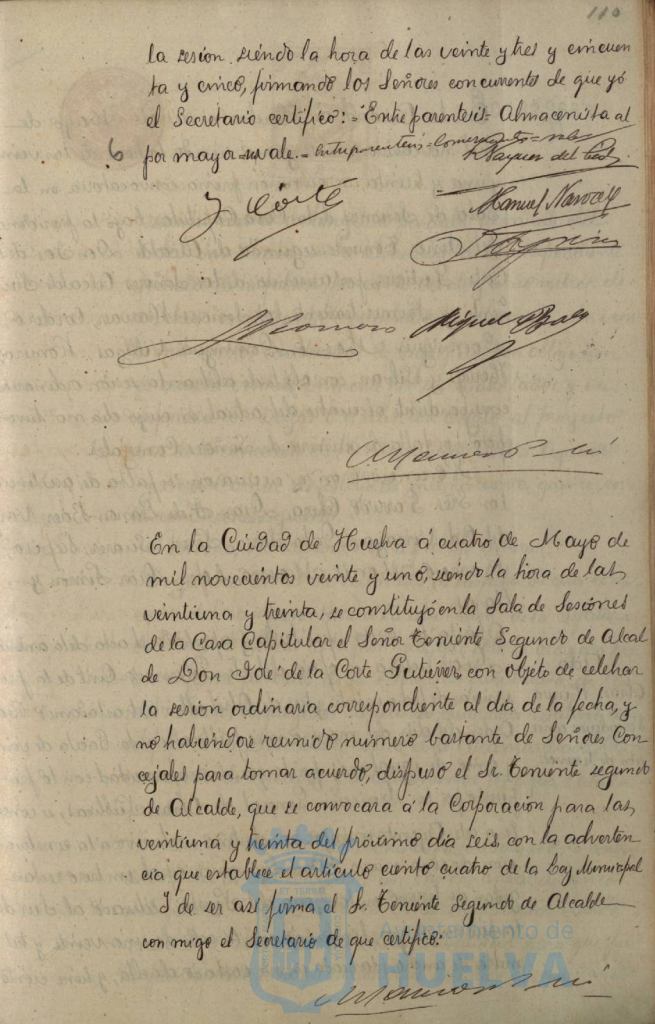 110
la sesión siendo la hora de las veinte y tres y cincuen
ta y cinco, firmando los Señores concurrentes de que yó
el Secretario certifico:=Entre parentesis=Almacenista al
6
por mayor=vale.=Entreparentesis=Comerciante=vale
Vazquez del
J Corté
Manuel Narváez
Romero
Miguel Baez
En la Ciudad de Huelva á cuatro de Mayo de
mil novecientos veinte y uno, siendo la hora de las
veintiuna y treinta, se constituyó en la Sala de Sesiones
de la Casa Capitular el Señor Teniente Segundo de Alcal
de Don José de la Corte Gutiérrez, con objeto de celebrar
la sesión ordinaria correspondiente al día de la fecha, y
no habiéndose reunido número bastante de Señores Con
cejales para tomar acuerdo, dispuso el Sr. Teniente segundo
de Alcalde, que se convocara á la Corporación para las
veintiuna y treinta del próximo día seis, con la adverten
cia que establece el artículo ciento cuatro de la Ley Municipal
Y de ser así firma el Sr. Teniente Segundo de Alcalde
con migo el Secretario de que certifico:
Ayuntamiento de
HUELVA